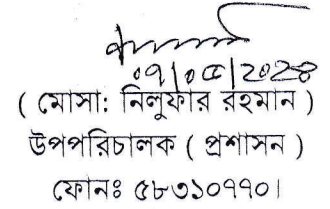 ০৭/০৫/2028
( মোসা: নিলুফার রহমান )
উপপরিচালক ( প্রশাসন )
ফোনঃ ৫৮৩১০৭৭০।